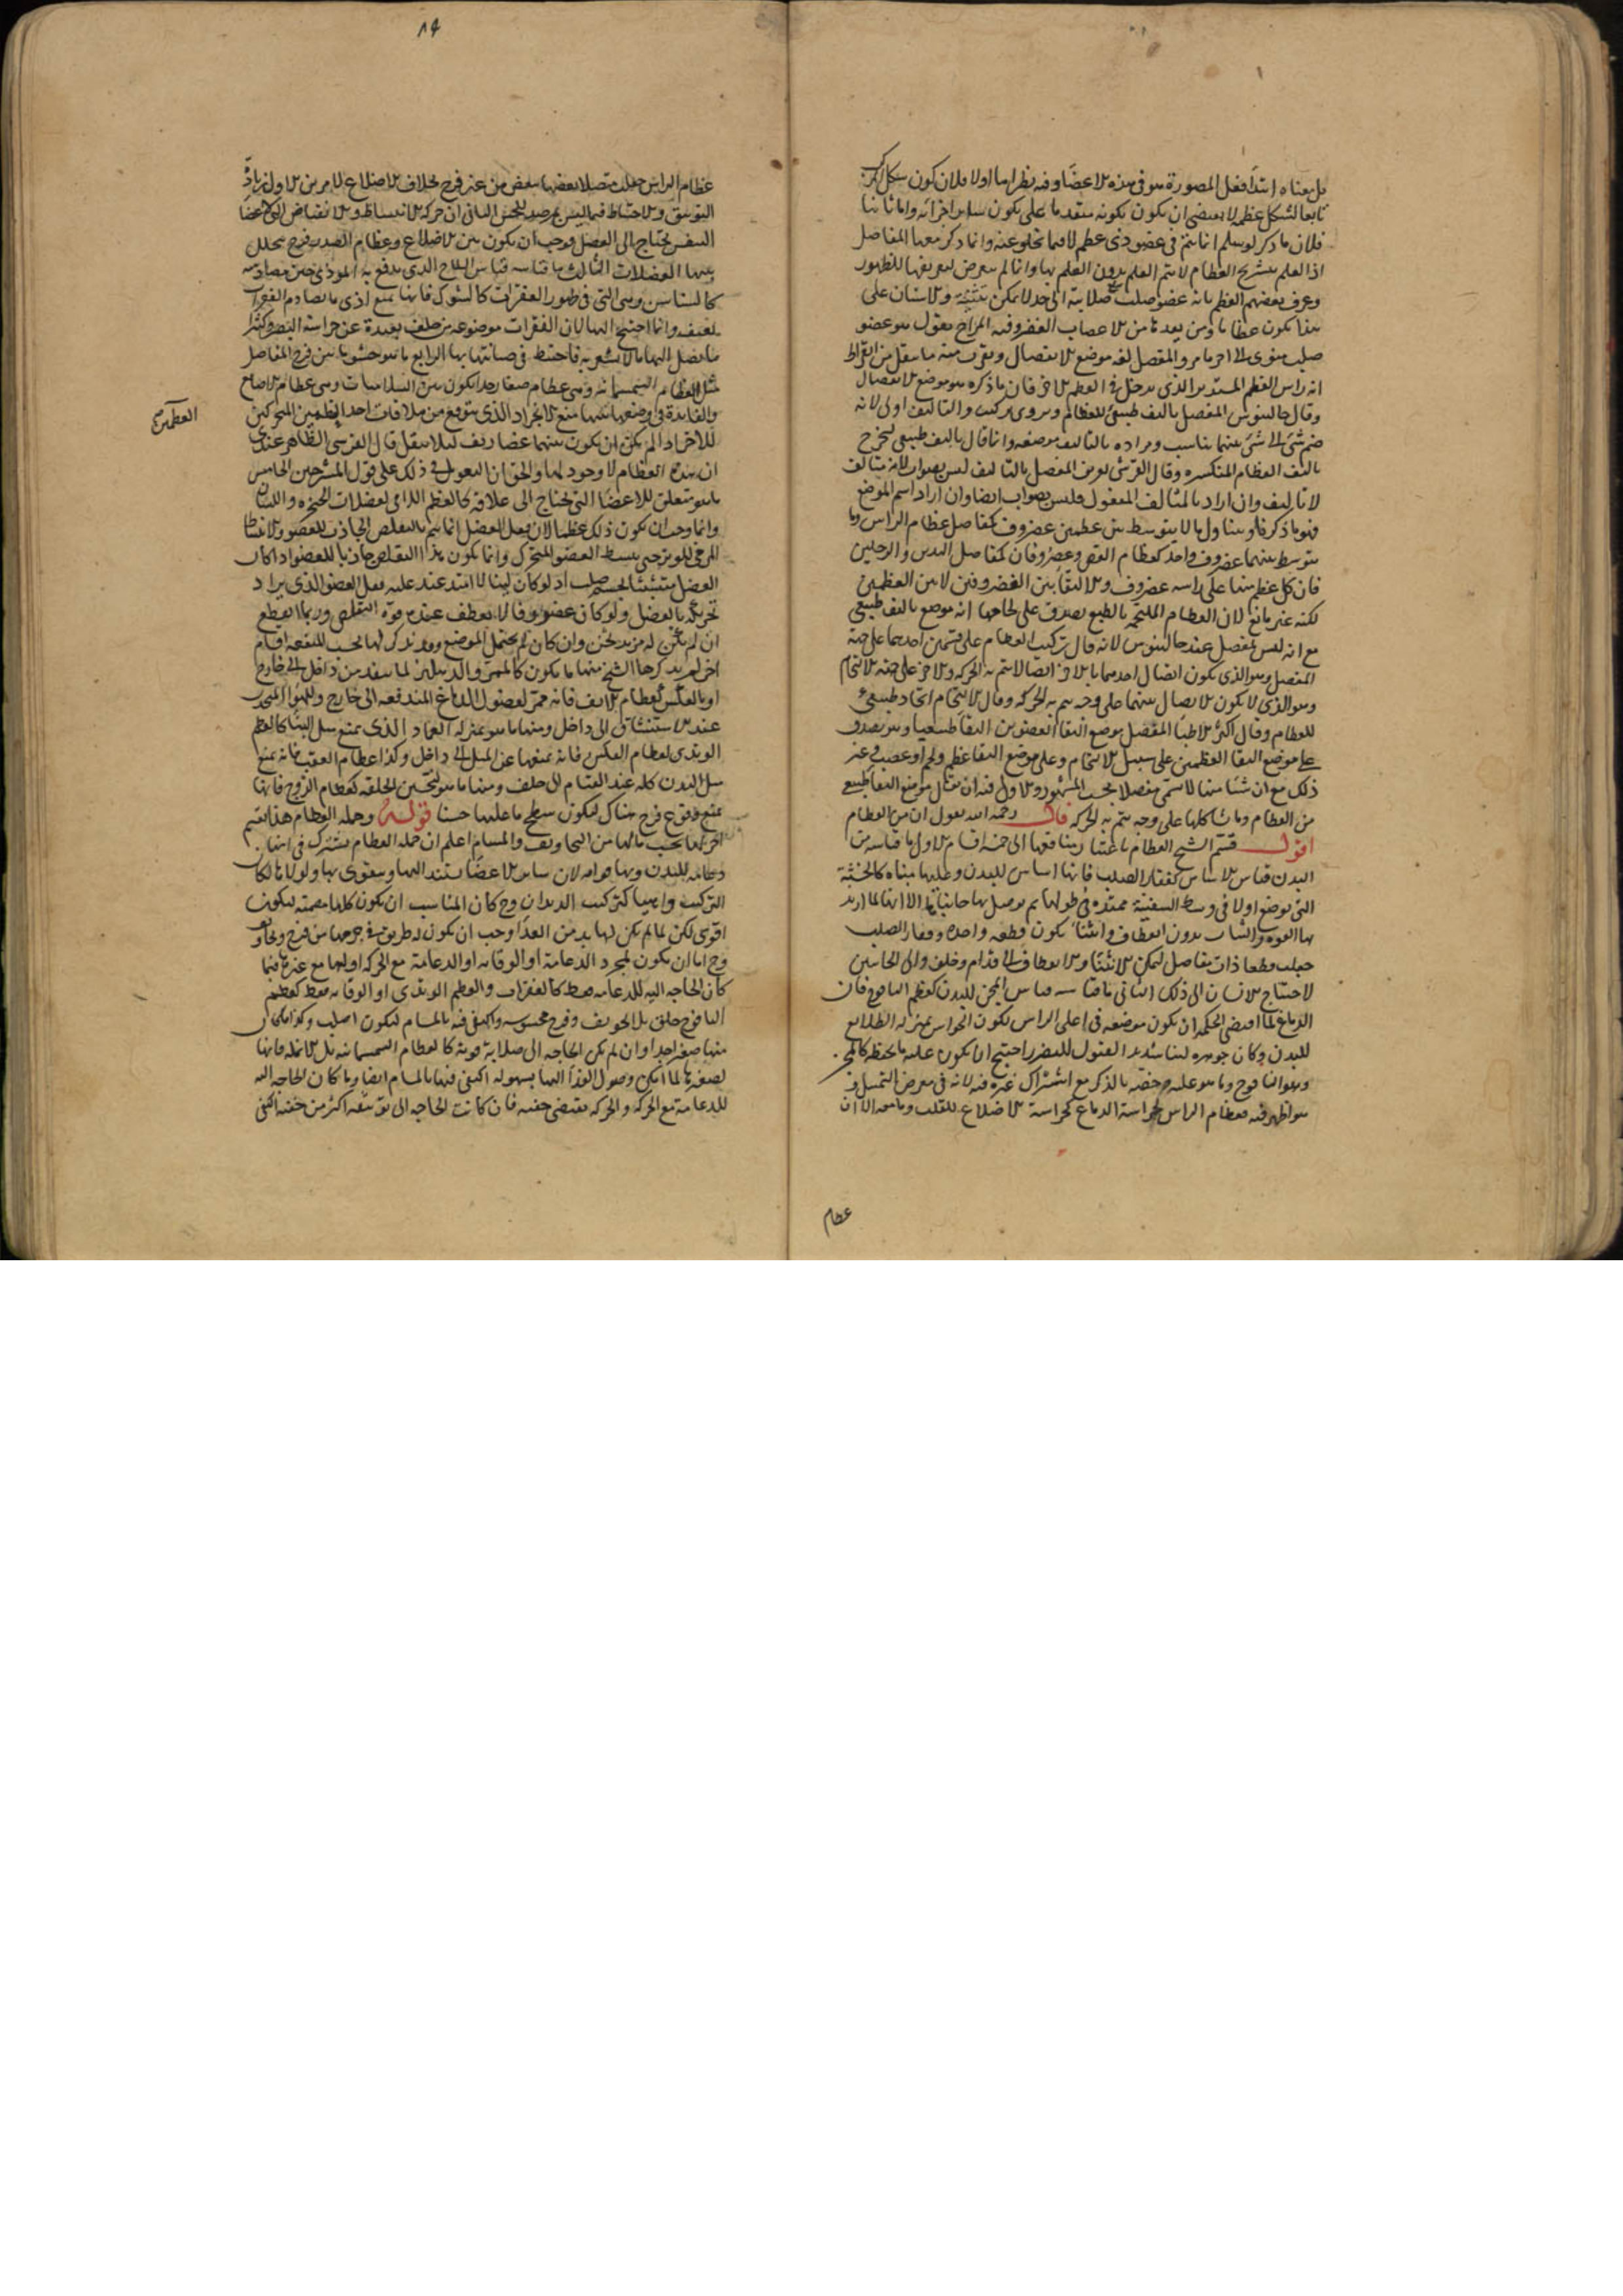 بل معناه ابتدأ فعل المصورة هو في هذه الاعضا وفيه نظر اما اولا فلان كون شكل
تابعا لشكل عظمه لا يقتضي ان يكون تكونه متقدما على تكون ساير اجزائه واما ثانيا
فلان ما ذكر لو سلم انما يتم في عضو ذي عظم لا فيما يخلو عنه وانما ذكر معها المفاصل
اذ العلم بتشريح العظام لا يتم العلم بدون العلم بها وانما لم يتعرض لتعريفها للظهور
وعرف بعضهم العظم بانه عضو صلب صلابته الى حد لا يمكن تثنيته والاسنان على
هذا يكون عظاما ومن يعدها من الاعصاب المزاج يقول هو عضو
صلب منوي الى اخر ما مر والمفصل لغة موضع الاتصال ويقرب منه ما ينقل عن ابقراط
انه راس العظم المستدير الذي يدخل في العظم الاخر فان ما ذكره هو موضع الاتصال
وقال جالينوس المفصل تاليف طبيعي للعظام ويروى تركيب والتاليف اولى لانه
ضم شئ الى شئ بينهما تناسب ومراده بالتاليف موضعه وانما قال تاليف طبيعي ليخرج
تاليف العظام المنكسره وقال القرشي تعريف المفصل بالتاليف ليس بصواب لانه متالف
لا تاليف وان اراد بالمتالف المفعول فليس بصواب ايضا وان اراد اسم الموضع
فهو ما ذكرناه ويتناول ما لا يتوسط بين عظمين غضروف كمفاصل عظام الراس وما
يتوسط بينهما غضروف واحد كعظام القص وغضروفان كمفاصل اليدين والرجلين
فان كل عظم منها على راسه غضروف والالتقا بين الغضروفين لا بين العظمين
لكنه غير مانع لان العظام الملتحمة بالطبع يصدق على لحامها انه موضع تاليف طبيعي
مع انه ليس بمفصل عند جالينوس لانه قال تركيب العظام على قسمين احدهما على جهة
المفصل وهو الذي يكون اتصال احدهما بالاخر اتصالا يتم به الحركة والاخر على جهة الالتحام
وهو الذي لا يكون الاتصال بينهما على وجه يتم به الحركه وقال الالتحام اتحاد طبيعي
للعظام وقال اكثر الاطبا المفصل موضع التقا العضوين التقا طبيعيا وهو يصدق
على موضع التقا العظمين على سبيل الالتحام وعلى موضع التقا عظم ولحم او عصب في غير
ذلك مع ان شئا منها لا يسمى مفصلا بحسب المشهور والاولى فيه ان يقال موضع التقا طبيعي
من العظام وما شاكلها على وجه يتم به الحركه قال رحمه الله نقول ان من العظام
اقول قسم الشيخ العظام باعتبار منافعها الى خمسة اقسام الاول ما قياسه من
البدن قياس الاساس كفقار الصلب فانها اساس للبدن وعليها مبناه كالخشبة
التي توضع اولا في وسط السفينة ممتدة في طولها ثم يوصل بها جانباها الا انها لما اريد
بها القوه والثبات بدون انعطاف وانثنا يكون قطعه واحده وفقار الصلب
جعلت قطعا ذات مفاصل ليمكن الانثنا والانعطاف الى قدام وخلف والى الجانبين
لاحتياج الانسان الى ذلك الثاني ما قياسه قياس المجن للبدن كعظم اليافوخ فان
الدماغ لما اقتضى الحكمة ان يكون موضعه في اعلى الراس ليكون الحواس بمنزله الطلائع
للبدن وكان جوهره لينا شديد القبول للضرر احتيج ان يكون عليه ما يحفظه كالمجن
وهو اليافوخ وما هو عليه وخصه بالذكر مع اشتراك غيره فيه لانه في معرض التمثيل و
هو اظهر فيه فعظام الراس لحراسة الدماغ كحراسة الاضلاع للقلب وما معه الا ان
عظام
٨٩
عظام الراس جعلت متصلا بعضها ببعض من غير فرج بخلاف الاضلاع لامرين الاول زيادة
التوثيق والاحتياط فيما ليس بمرصد للحس الثاني ان حركة الانبساط والانقباض التي لاعضا
التنفس تحتاج الى العضل فوجب ان يكون بين الاضلاع وعظام الصدر فرج يتخلل
بينها العضلات الثالث ما قياسه قياس السلاح الذي يدفع به الموذي حين مصادمته
كالسناسن وهي التي في ظهور الفقرات كالشوك فانها تمنع اذى ما يصادم الفقرات
بعنف وانما احتيج اليها لان الفقرات موضوعة من خلف بعيدة عن حراسة البصر وكثيرا
ما يصل اليها ما لا يشعر به فاحتيط في صيانتها بها الرابع ما هو حشو ما بين فرج المفاصل
مثل العظام السمسمانيه وهي عظام صغار جدا تكون بين السلاميات وهي عظام الاصابع
والفايدة في وضعها بينهما منع الانجراد الذي يتوقع من ملاقات احد العظمين المتحركين
للاخر اذ لم يكن ان يكون بينهما غضاريف لئلا يثقل قال القرشي الظاهر عندي
ان هذه العظام لا وجود لها والحق ان التعويل في ذلك على قول المشرحين الخامس
ما هو متعلق للاعضا التي تحتاج الى علاقة كالعظم اللامي لعضلات الحنجره واللسان
وانما وجب ان يكون ذلك عظما لان فعل العضل انما يتم بالتقلص الجاذب للعضو والانبساط
المرخي للوتر حتى ينبسط العضو المتحرك وانما يكون هذا التقلص جاذبا للعضو اذا كان
العضل متشبثا بجسم صلب اذ لو كان لينا لامتد عند عليه فعل العضو الذي يراد
تحريكه بالعضل ولو كان غضروفا لانعطف عند قوه التقلص وربما انقطع
ان لم يكن له مزيد ثخن وان كان لم يحتمله الموضع وقد يذكر لها بحسب المنفعه اقسام
اخر لم يذكرها الشيخ منها ما يكون كالممر والدهليز لما ينفذ من داخل الى خارج
او بالعكس كعظام الانف فانه ممر لفضول الدماغ المندفعه الى خارج وللهوا المنجذب
عند الاستنشاق الى داخل ومنها ما هو بمنزله العماد الذي يمنع ميل البنا كالعظم
الوتدي لعظام الفكين فانه يمنعها عن الميل الى داخل وكذا عظام العقب فانه يمنع
ميل البدن كله عند القيام الى خلف ومنها ما هو لتحسين الخلقه كعظام الزوج فانها
تمنع وقوع فرج هناك ليكون سطح ما عليها حسنا قوله وجمله العظام هذا تقسيم
اخر لها بحسب ما لها من التجاويف والمسام اعلم ان جمله العظام يشترك في انها
دعامه للبدن وبها قوامه لان ساير الاعضا يستند اليها ويتقوى بها ولولاها لكان
التركيب واهيا كتركيب الديدان وح كان المناسب ان يكون كلها مصمته ليكون
اقوى لكن لما لم يكن لها بد من الغذا وجب ان يكون له طريق في جرمها من فرج وتجاويف
وح اما ان يكون لمجرد الدعامة او الوقايه او الدعامة مع الحركه او لهما مع غيرها فما
كان الحاجه اليه للدعامه فقط كالفقرات والعظم الوتدي او الوقايه فقط كعظم
اليافوخ خلق بلا تجويف وفرج محسوسه واكتفي فيه بالمسام ليكون اصلب وكذا ما كان
منها صغيرا جدا وان لم يكن الحاجه الى صلابة قوية كالعظام السمسمانيه بل الانمله فانها
لصغرها لما امكن وصول الغذا اليها بسهوله اكتفي فيها بالمسام ايضا وما كان الحاجه اليه
للدعامة مع الحركه والحركه يقتضي خفته فان كانت الحاجه الى توثيقه اكثر من خفته اكتفي
العظمين صح